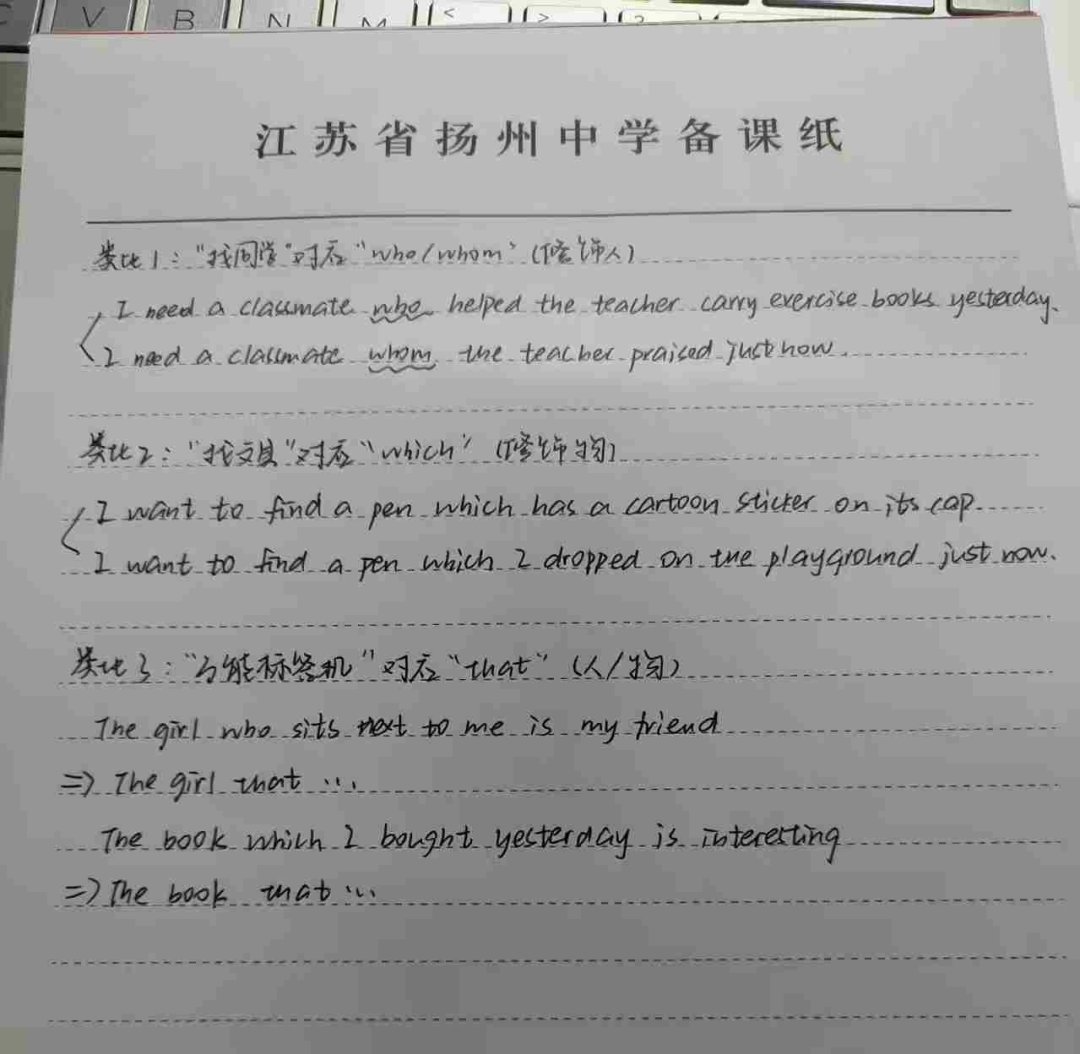 V B N M < > ?
江苏省扬州中学备课纸
类比1:"找同学"对应"who/whom"(修饰人)
I need a classmate who helped the teacher carry exercise books yesterday.
I need a classmate whom the teacher praised just now.
类比2:"找文具"对应"which"(修饰物)
I want to find a pen which has a cartoon sticker on its cap
I want to find a pen which I dropped on the playground just now.
类比3:"万能标签机"对应"that"(人/物)
The girl who sits next to me is my friend
=> The girl that ...
The book which I bought yesterday is interesting
=> The book that ...